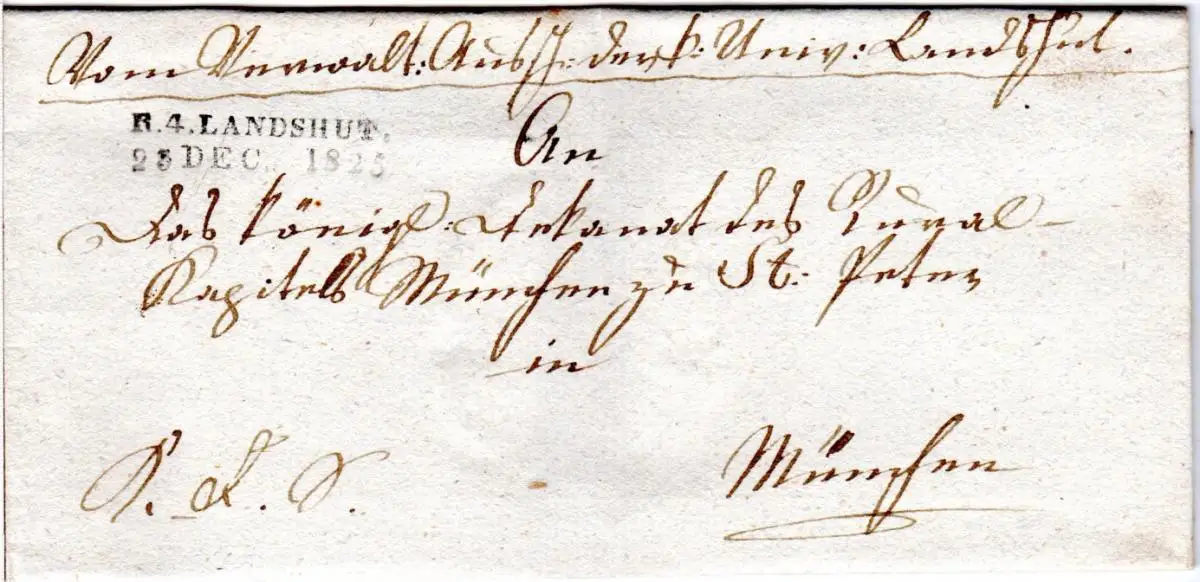 Vom Verwalt: Aussch: der k: Univ: Landshut.
R.4.LANDSHUT.
23 DEC. 1825
An
Das königl: Dekanat des Rural-
Kapitels München zu St: Peter
in
München
R. S.